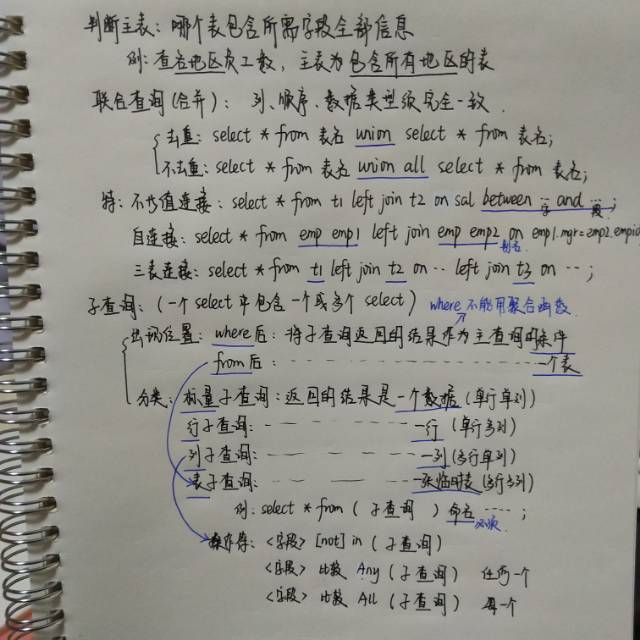 判断主表：哪个表包含所需字段全部信息
例：查各地区员工数，主表为包含所有地区的表
联合查询(合并)：列、顺序、数据类型须完全一致.
去重：select * from 表名 union select * from 表名;
不去重：select * from 表名 union all select * from 表名;
特：不等值连接：select * from t1 left join t2 on sal between ... and ...;
自连接：select * from emp emp1 left join emp emp2 on emp1.mgr=emp2.empno
别名
三表连接：select * from t1 left join t2 on ... left join t3 on ...;
子查询：(一个select中包含一个或多个select) where不能用聚合函数
出现位置：where后：将子查询返回的结果作为主查询的条件
from后：---------- 一个表
分类：标量子查询：返回的结果是一个数据(单行单列)
行子查询：---------- 一行(单行多列)
列子查询：---------- 一列(多行单列)
表子查询：---------- 一张临时表(多行多列)
例：select * from (子查询) 命名 ----;
必须
操作符：<字段> [not] in (子查询)
<字段> 比较 Any (子查询) 任何一个
<字段> 比较 All (子查询) 每个